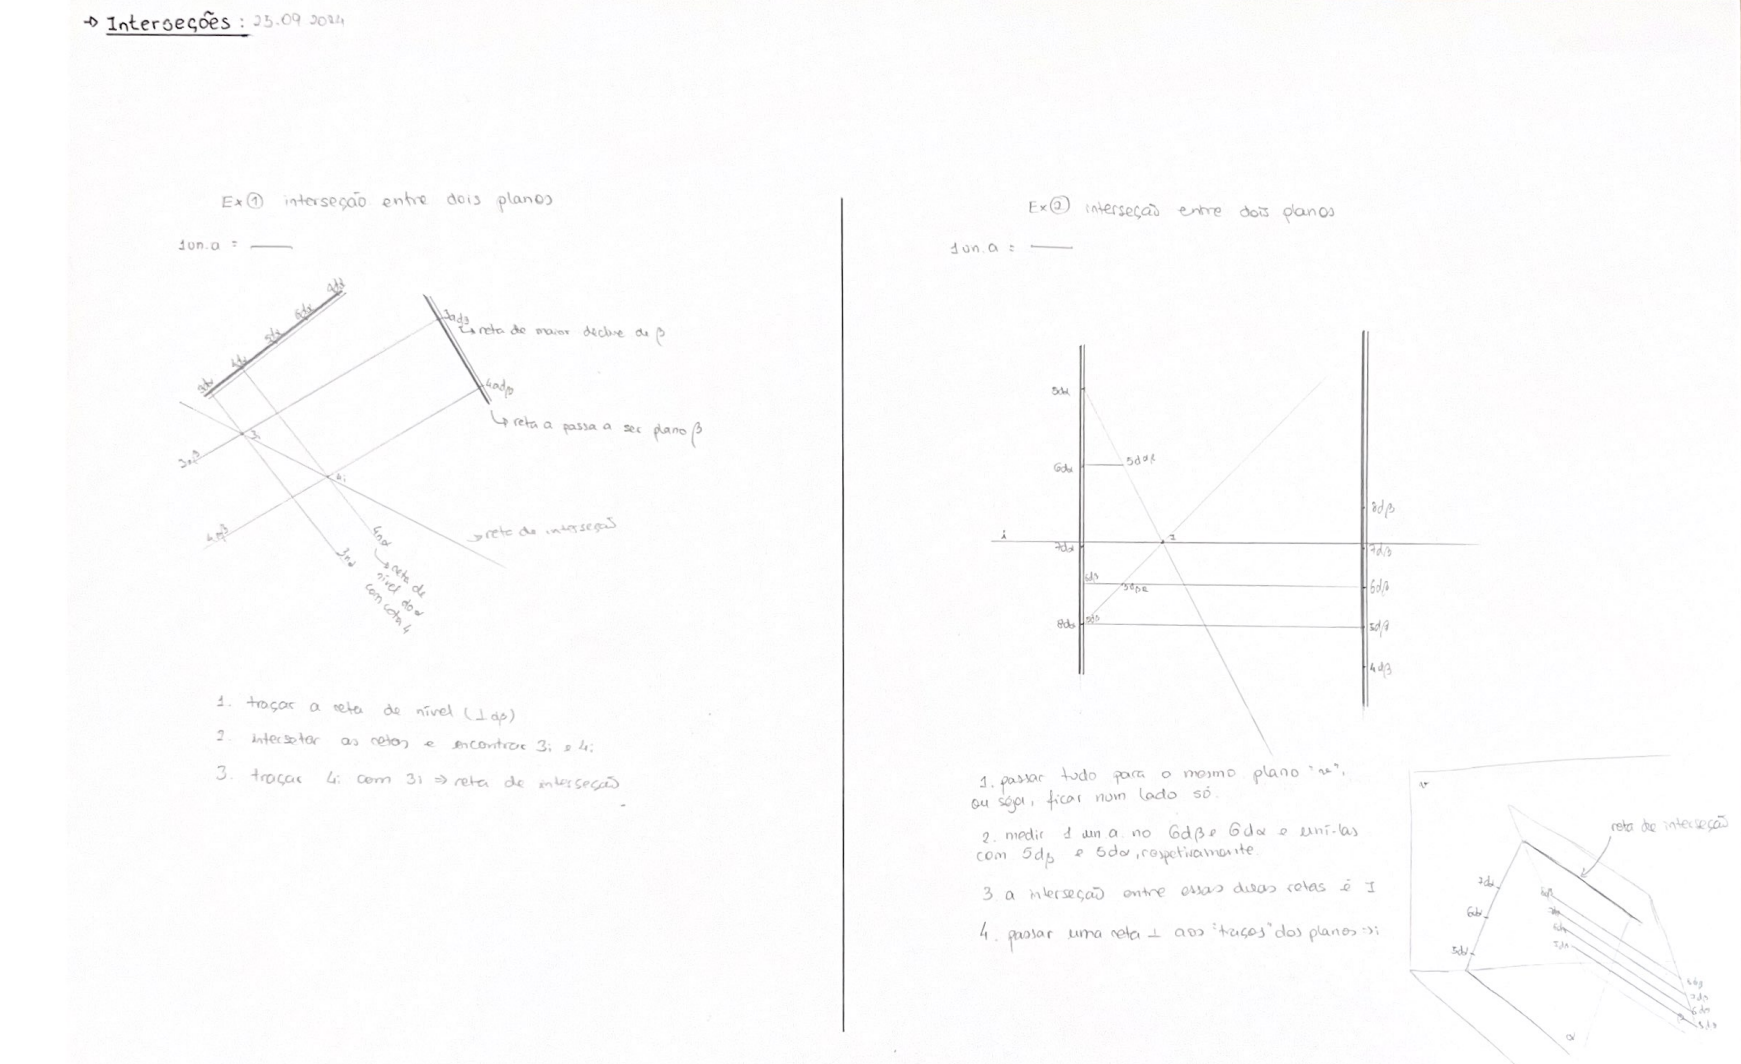 → Interseções : 25.09 2024
Ex① interseção entre dois planos
1un.a =
3dα
4dα
5dα
6dα
3adβ
↳ reta de maior declive de β
4adβ
↳ reta a passa a ser plano β
3i
3nβ
4i
4nβ
→ reta de interseção
4nα
3nα
↳ reta de
nível do α
com cota 4
1. traçar a reta de nível (⊥dβ)
2. intersetar as retas e encontrar 3i e 4i
3. traçar 4i com 3i ⇒ reta de interseção
Ex② interseção entre dois planos
1un.a =
5dα
6dα
5dαR
8dβ
i
7dα
7dβ
6dβ
5dβR
6dβ
8dα
5dβ
5dβ
4dβ
1. passar tudo para o mesmo plano
ou seja, ficar num lado só.
2. medir 1 un a. no 6dβ e 6dα e uni-las
com 5dβ e 5dα, respetivamente.
3. a interseção entre essas duas retas é I
4. passar uma reta ⊥ aos "traços" dos planos ⇒ i
reta de interseção
7dα
6dα
5dα
α